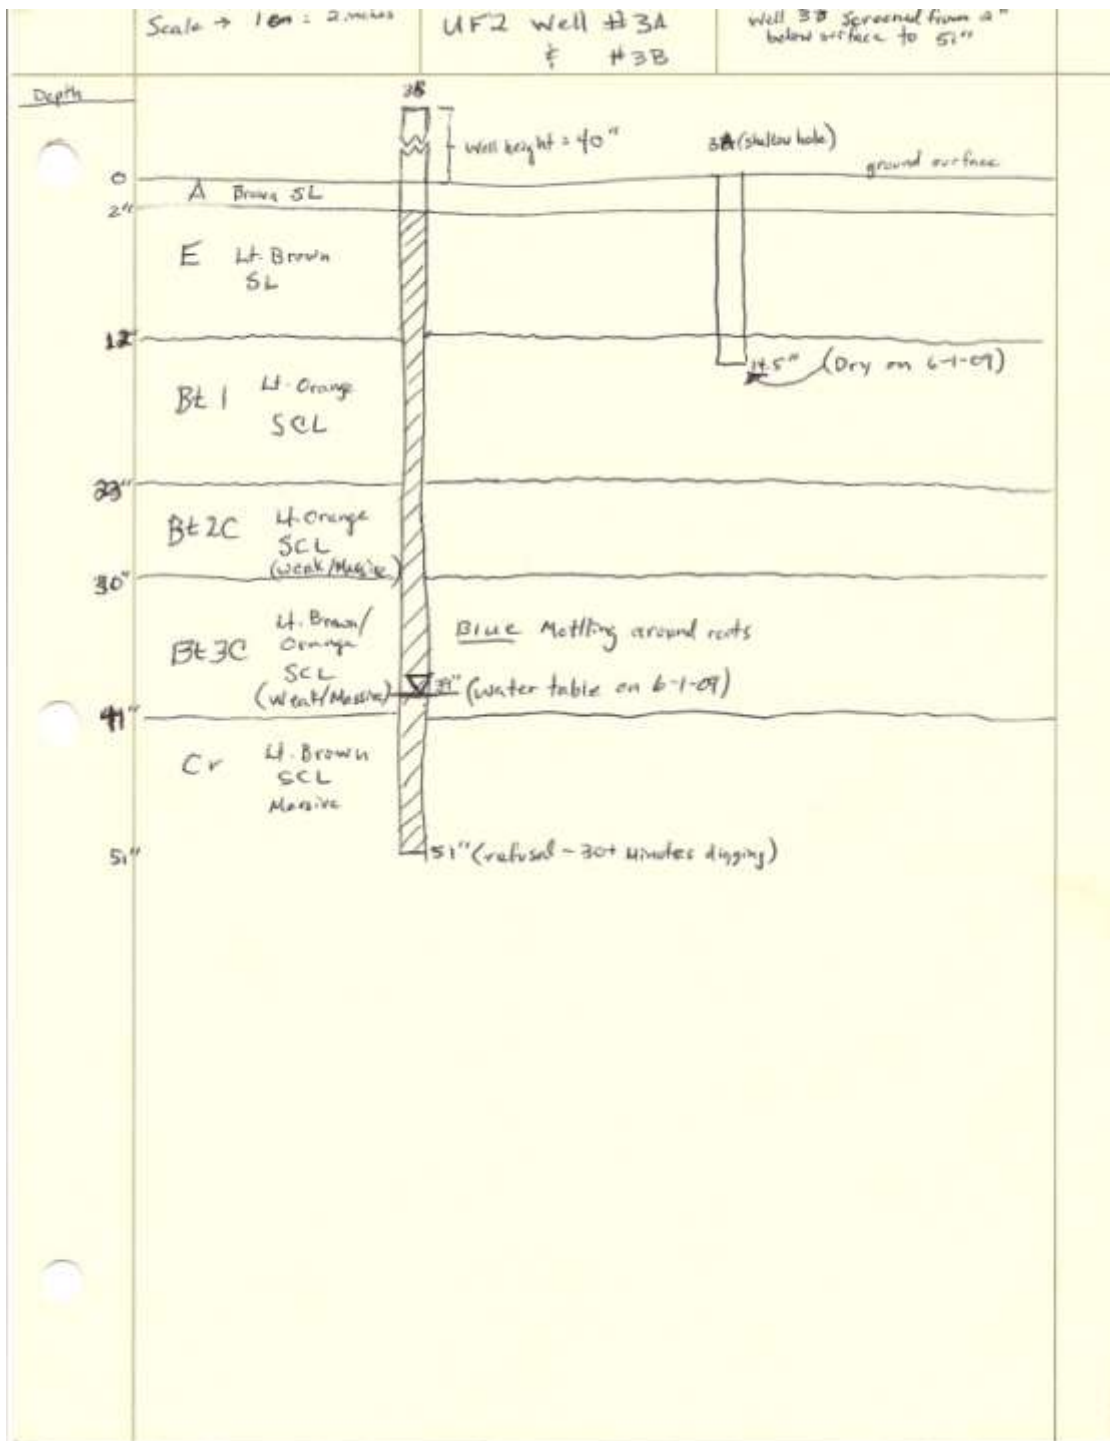 Scale → 1 cm = 2 inches
UF2 Well #3A
& #3B
Well 3B Screened from 2"
below surface to 51"
Depth
3B
Well height = 40"
3A (shallow hole)
ground surface
0
A Brown SL
2"
E Lt. Brown
SL
12"
14.5" (Dry on 6-1-09)
Bt 1 Lt. Orange
SCL
23"
Bt2C Lt. Orange
SCL
(weak/Massive)
30"
Bt3C Lt. Brown/
Orange
SCL
(Weak/Massive)
Blue Mottling around roots
39" (water table on 6-1-09)
41"
Cr Lt. Brown
SCL
Massive
51"
51" (refusal - 30+ Minutes digging)